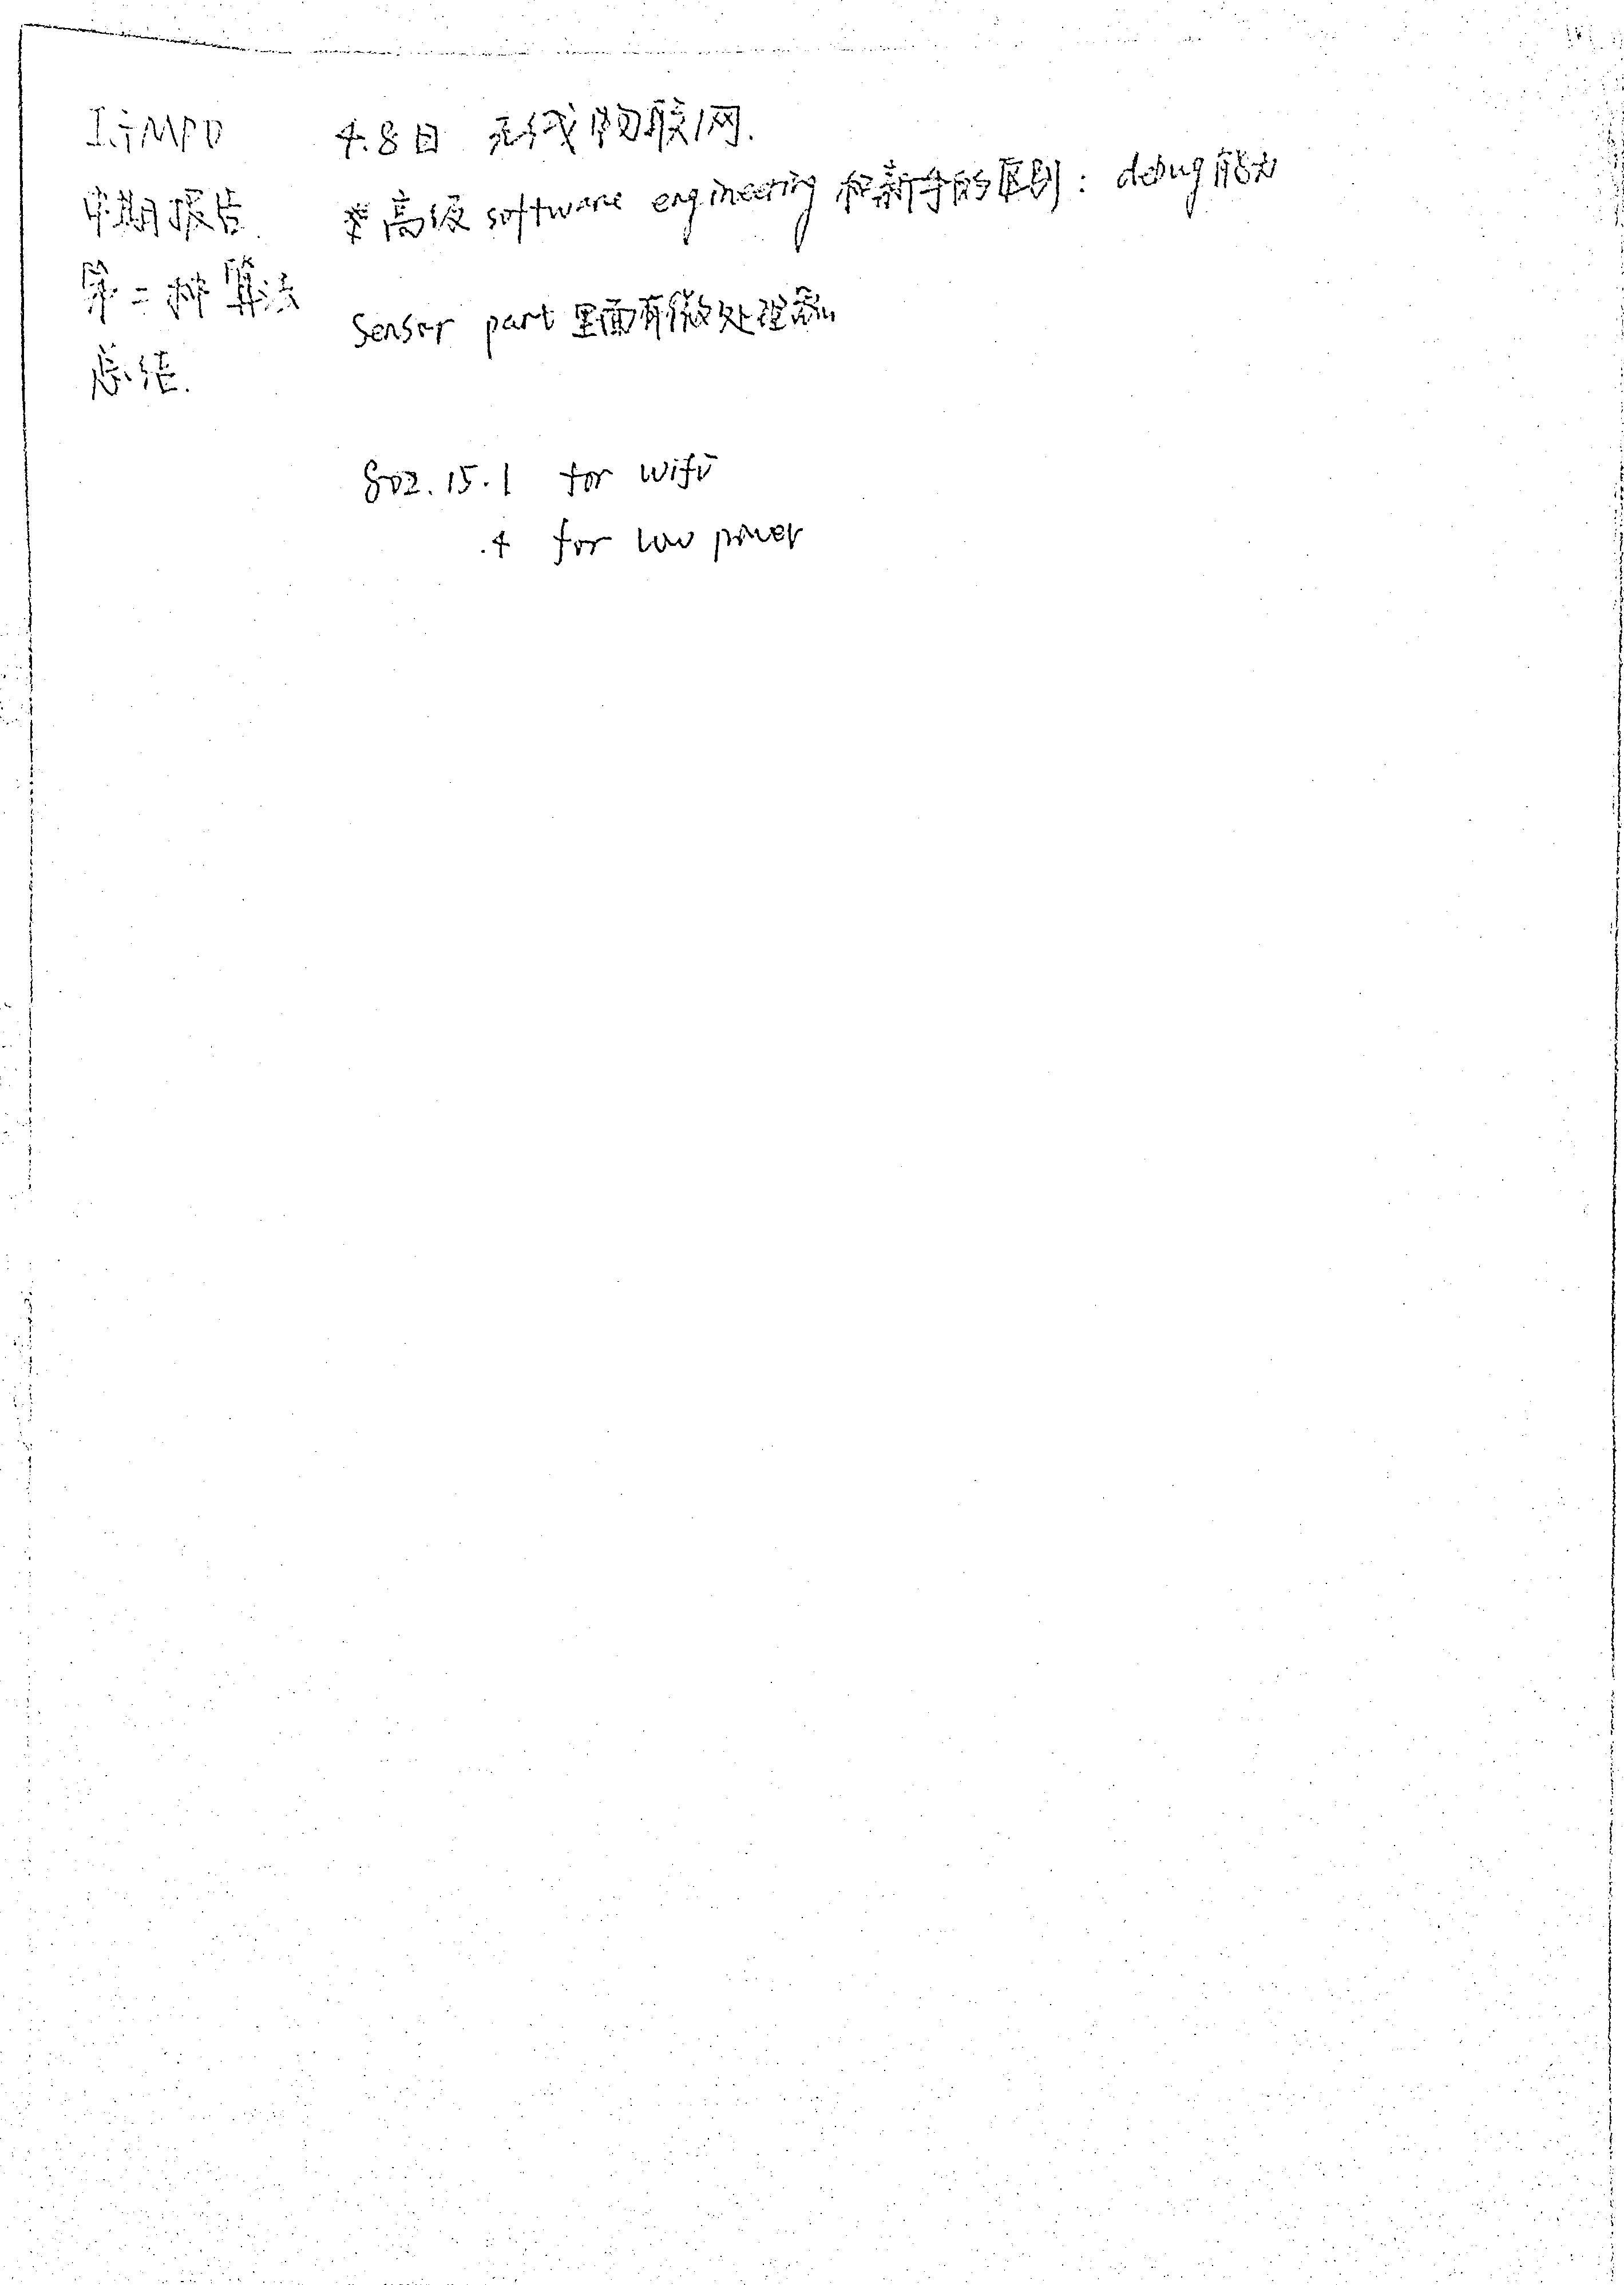 中期报告.
第二种算法
总结.
4.8日 无线物联网.
* 高级 software engineering 和新手的区别: debug能力
Sensor part 里面有微处理器
802.15.1 for wifi
.4 for low power